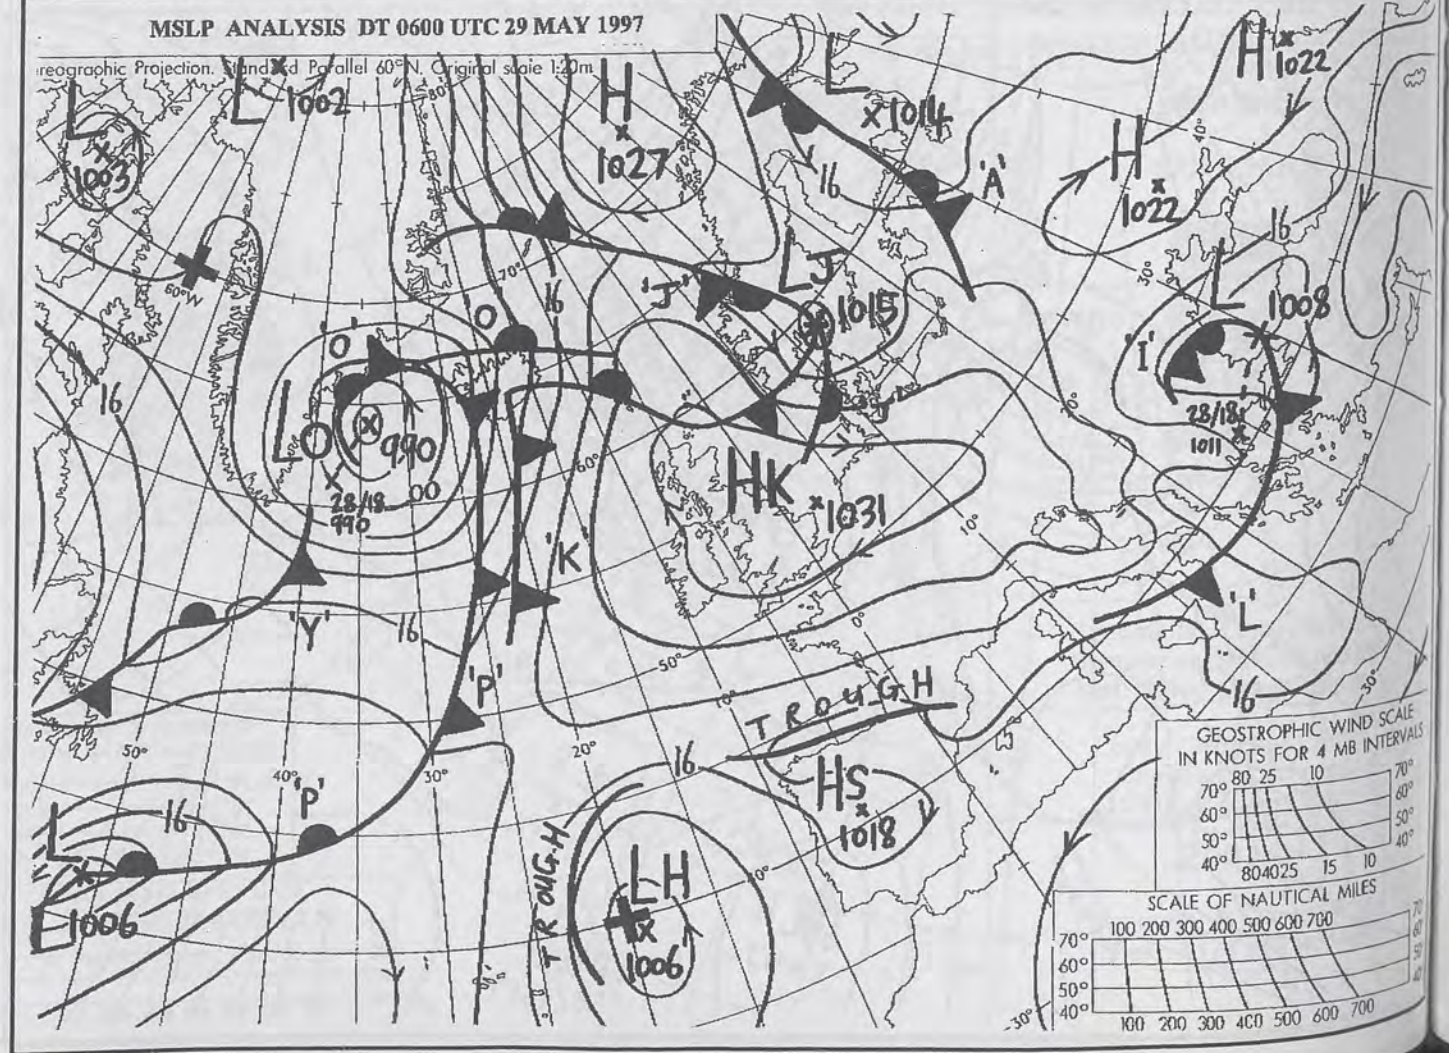 MSLP ANALYSIS DT 0600 UTC 29 MAY 1997
reographic Projection. Standard Parallel 60°N. Original scale 1:20m
L
1003
L
1002
H
1027
L
1014
'A'
16
H
1022
H
1022
16
40°
30°
L
1008
'I'
28/18
1011
80°
70°
60°W
16
16
'O'
O
LO
990
28/18
990
00
'J'
LJ
1015
'J'
20°
60°
HK
1031
10°
'K'
'Y'
16
'P'
0°
50°
10°
'L'
16
30°
TROUGH
16
HS
1018
50°
40°
30°
20°
'P'
16
L
E
1006
TROUGH
LH
1006
40°
30°
GEOSTROPHIC WIND SCALE
IN KNOTS FOR 4 MB INTERVALS
80 25 10
70° 70°
60° 60°
50° 50°
40° 40°
80 40 25 15 10
SCALE OF NAUTICAL MILES
100 200 300 400 500 600 700
70° 70°
60° 60°
50° 50°
40° 40°
100 200 300 400 500 600 700